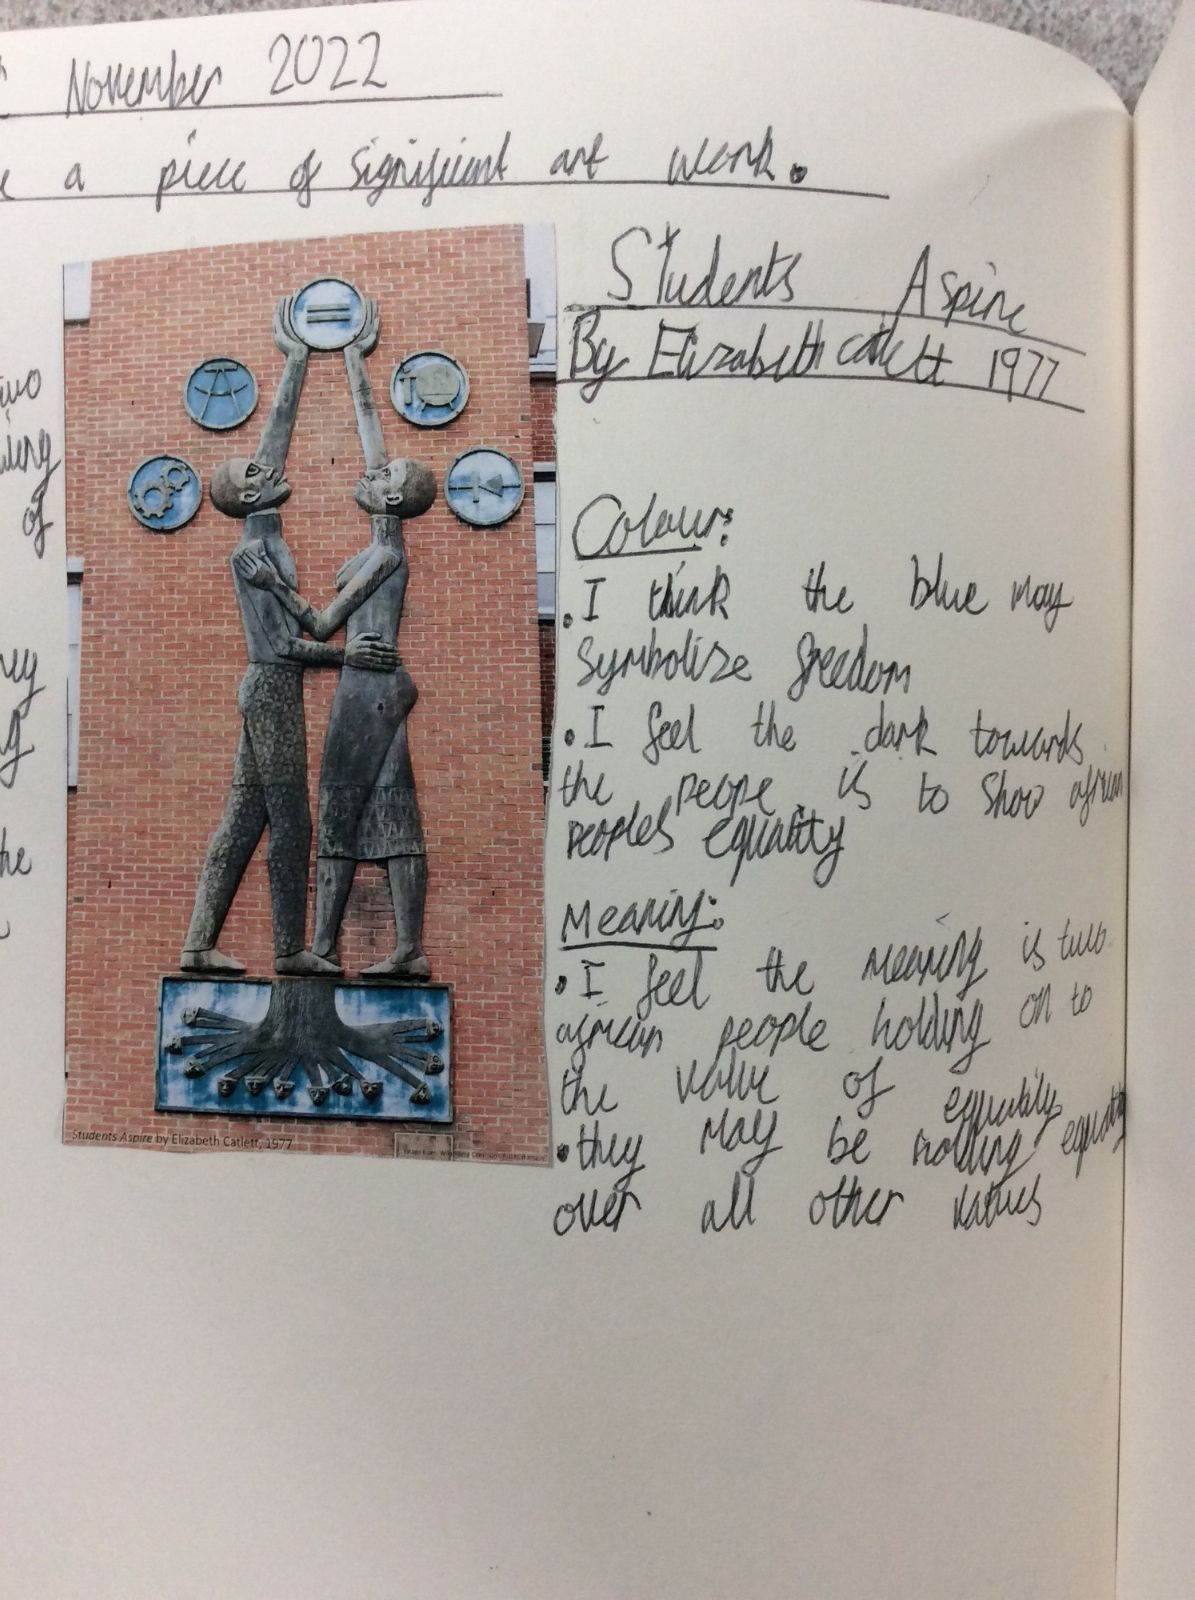 November 2022
a piece of significant art work.
Students Aspire
By Elizabeth catlett 1977
of
the
Colour:
. I think the blue may
symbolize freedom
. I feel the dark towards
the peope is to show african
peoples equality
Meaning:
. I feel the meaning is two
african people holding on to
the value of equality
. they may be holding equality
over all other values
Students Aspire by Elizabeth Catlett, 1977